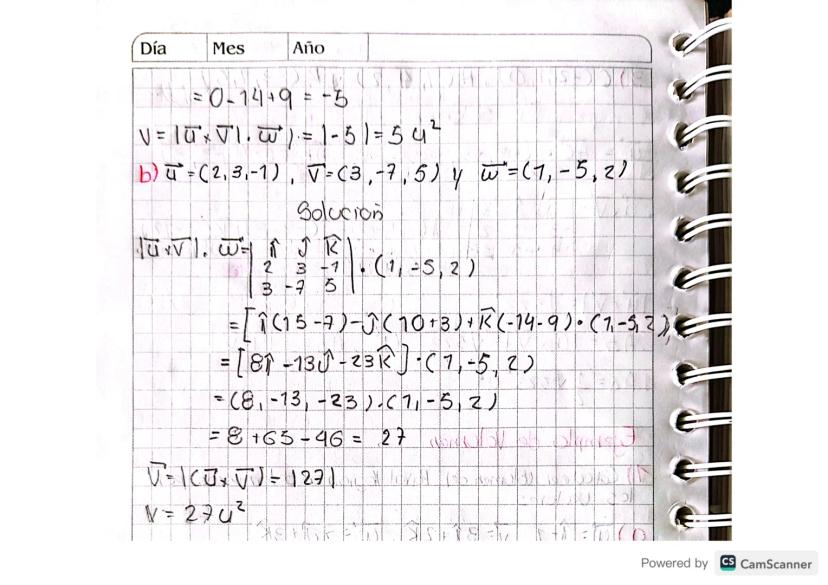 Día Mes Año
= 0 - 14 + 9 = -5
V = |u⃗ × v⃗| . w⃗) = |-5| = 5 u²
b) u⃗ = (2, 3, -1) , v⃗ = (3, -7, 5) y w⃗ = (1, -5, 2)
Solución
|u⃗ × v⃗| . w⃗ = | î ĵ k̂ |
| 2 3 -1 | . (1, -5, 2)
| 3 -7 5 |
= [ î (15 - 7) - ĵ (10 + 3) + k̂ (-14 - 9) • (1, -5, 2)
= [8î - 13ĵ - 23k̂] • (1, -5, 2)
= (8, -13, -23) . (1, -5, 2)
= 8 + 65 - 46 = 27
V = |(u⃗ × v⃗) = |27|
V = 27 u²
Powered by CS CamScanner